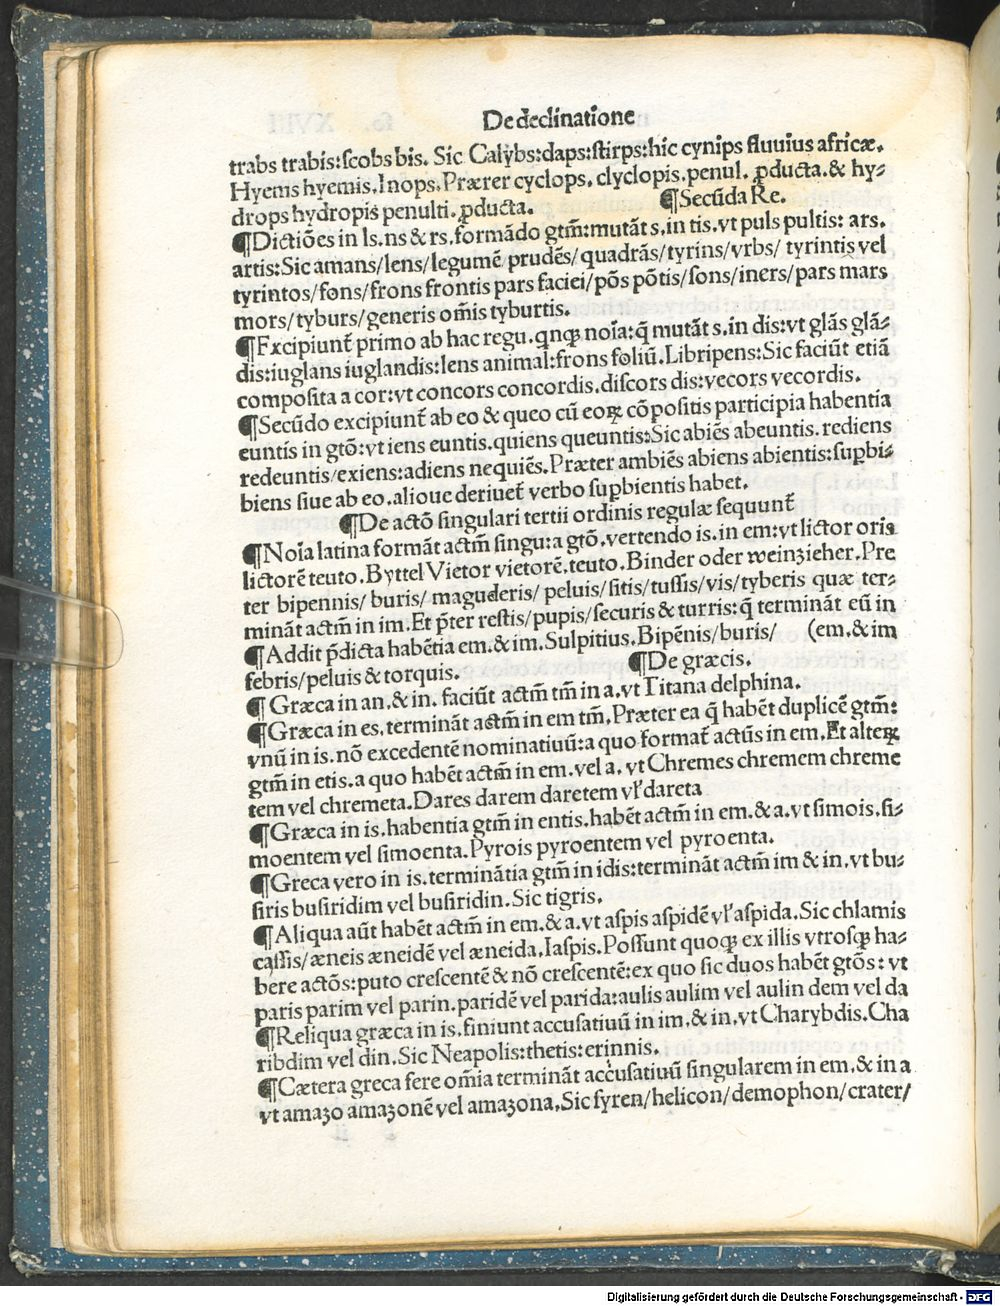 De declinatione
trabs trabis:scobs bis. Sic Calybs:daps:stirps:hic cynips fluuius africæ.
Hyems hyemis. Inops. Præter cyclops, clyclopis. penul. ꝓducta. & hy⸗
drops hydropis penulti. ꝓducta. ¶Secūda Re.
¶Dictiões in ls. ns & rs. formādo gtm̄:mutāt s. in tis. vt puls pultis: ars.
artis:Sic amans/lens/legumē prudēs/ quadrās/tyrins/vrbs/ tyrintis vel
tyrintos/fons/frons frontis pars faciei/pōs pōtis/sons/iners/pars mars
mors/tyburs/generis oīs tyburtis.
¶Excipiunt̄ primo ab hac regu. qnqꝫ noīa:q̄ mutāt s. in dis:vt glās glā⸗
dis:iuglans iuglandis:lens animal:frons foliū. Libripens:Sic faciūt etiā
composita a cor:vt concors concordis. discors dis:vecors vecordis.
¶Secūdo excipiunt̄ ab eo & queo cū eoꝝ cōpositis participia habentia
euntis in gtō:vt iens euntis. quiens queuntis:Sic abiēs abeuntis. rediens
redeuntis/exiens:adiens nequiēs. Præter ambiēs abiens abientis:suꝑbi⸗
biens siue ab eo. alioue deriuet̄ verbo suꝑbientis habet.
¶De actō singulari tertii ordinis regulæ sequunt̄
¶Noīa latina formāt actm̄ singu:a gtō. vertendo is. in em:vt lictor oris
lictorē teuto. Byttel Vietor vietorē. teuto. Binder oder weinzieher. Pre
ter bipennis/ buris/ maguderis/ peluis/ sitis/ tussis/ vis/ tyberis quæ ter⸗
mināt actm̄ in im. Et p̄ter restis/pupis/securis & turris:q̄ termināt eū in
¶Addit p̄dicta habētia em. & im. Sulpitius. Bipēnis/buris/ (em. & im
febris/peluis & torquis. ¶De græcis.
¶Græca in an. & in. faciūt actm̄ tm̄ in a. vt Titana delphina.
¶Græca in es. termināt actm̄ in em tm̄. Præter ea q̄ habēt duplicē gtm̄:
vnū in is. nō excedentē nominatiuū:a quo format̄ actūs in em. Et alteꝝ
gtm̄ in etis. a quo habēt actm̄ in em. vel a. vt Chremes chremem chreme
tem vel chremeta. Dares darem daretem vl' dareta
¶Græca in is. habentia gtm̄ in entis. habēt actm̄ in em. & a. vt simois. si⸗
moentem vel simoenta. Pyrois pyroentem vel pyroenta.
¶Greca vero in is. terminātia gtm̄ in idis:termināt actm̄ im & in. vt bu⸗
siris busiridim vel busiridin. Sic tigris.
¶Aliqua aūt habēt actm̄ in em. & a. vt aspis aspidē vl' aspida. Sic chlamis
cassis/æneis æneidē vel æneida. Iaspis. Possunt quoqꝫ ex illis vtrosqꝫ ha⸗
bere actōs:puto crescentē & nō crescentē:ex quo sic duos habēt gtōs: vt
paris parim vel parin. paridē vel parida:aulis aulim vel aulin dem vel da
¶Reliqua græca in is. finiunt accusatiuū in im. & in. vt Charybdis. Cha
ribdim vel din. Sic Neapolis:thetis:erinnis.
¶Cætera greca fere omīa termināt accusatiuū singularem in em. & in a
vt amazo amazonē vel amazona. Sic syren/helicon/demophon/crater/
Digitalisierung gefördert durch die Deutsche Forschungsgemeinschaft - DFG